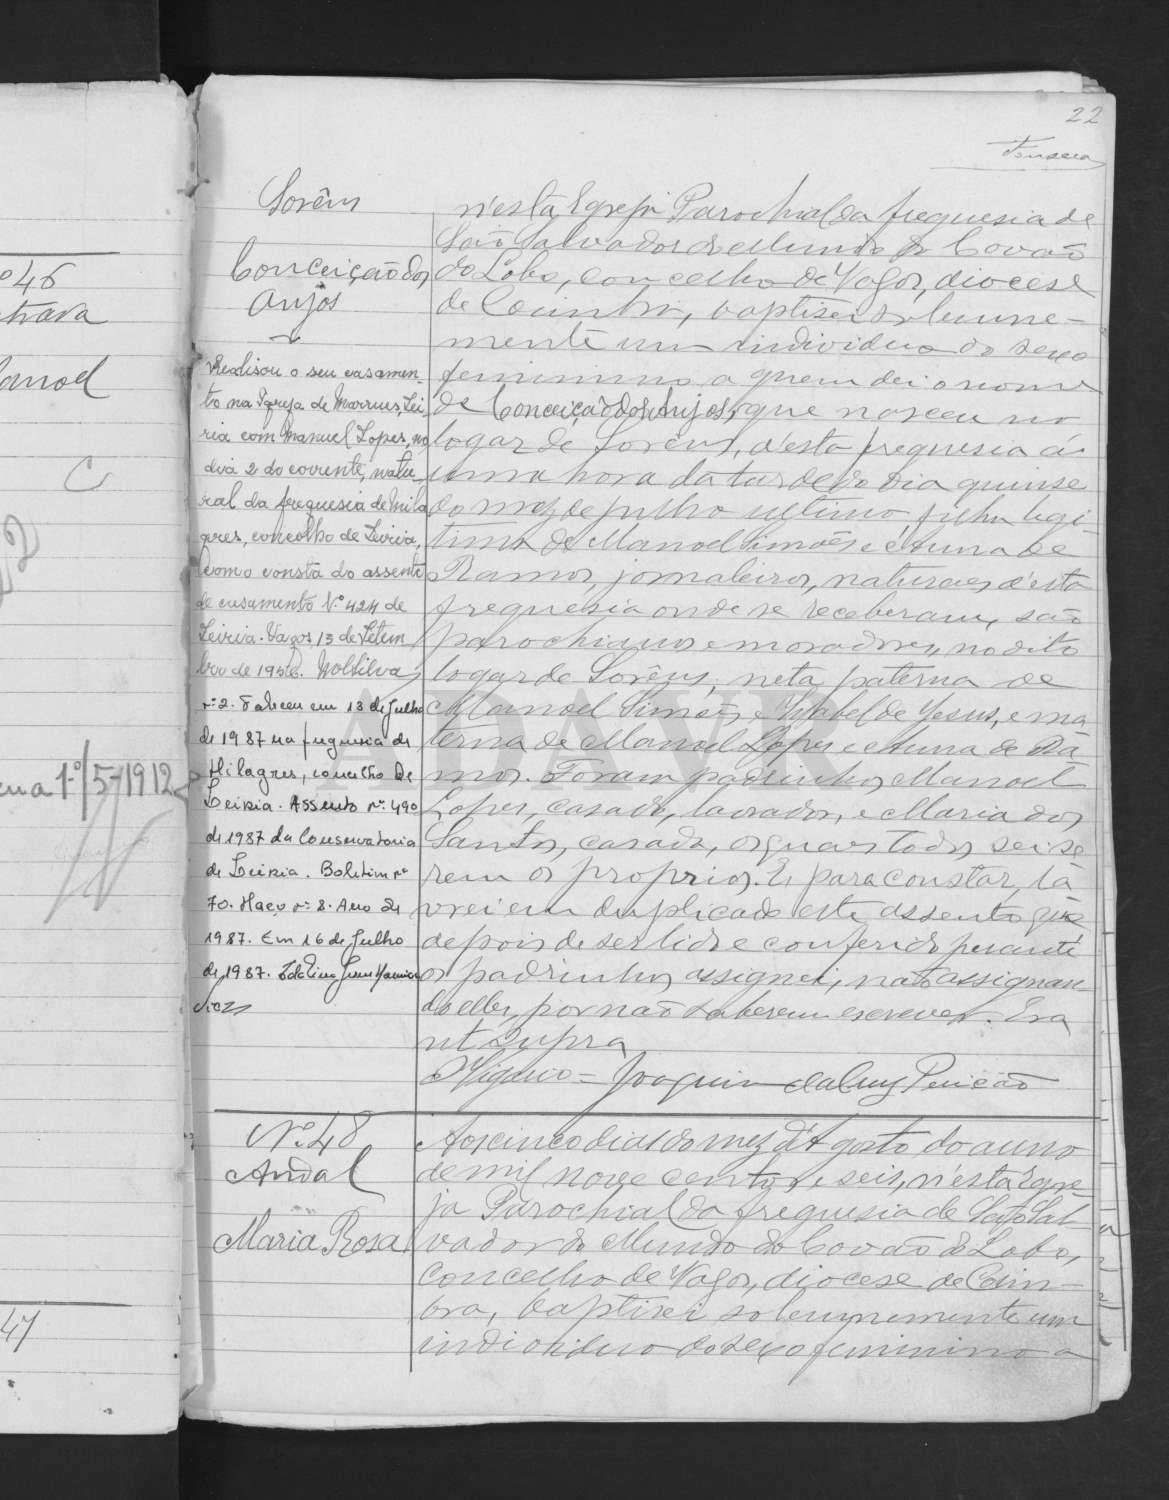 22
Fonseca
Lorêns
Conceição dos
Anjos
Realisou o seu casamen-
to na Igreja de Marrases, Lei
ria com Manuel Lopes, no
dia 2 do corrente, natu-
ral da freguesia de Mila
gres, concelho de Leiria,
como consta do assento
de casamento N.º 424 de
Leiria. Vagos, 13 de Setem
bro de 1956.
nº 2. Faleceu em 13 de Julho
de 1987 na freguesia de
Milagres, concelho de
Leiria. Assento nº 490
de 1987 da Conservatoria
de Leiria. Boletim nº
70. Maço nº 8. Ano de
1987. Em 16 de Julho
de 1987.
n'esta Egreja Parochial da freguesia de
São Salvador do Mundo do Covão
do Lobo, concelho de Vagos, diocese
de Coimbra, baptisei solemne-
mente um individuo do sexo
feminino a quem dei o nome
de Conceição dos Anjos, que nasceu no
logar de Lorêns, d'esta freguesia á
uma hora da tarde do dia quinse
do mez de julho ultimo, filha legi
tima de Manoel Simões e Anna de
Ramos, jornaleiros, naturaes d'esta
freguesia onde se receberam, são
parochianos e moradores, no dito
logar de Lorêns, neta paterna de
Manoel Simões, e Izabel de Jesus, e ma
terna de Manoel Lopes e Anna de Ra
mos. Foram padrinhos Manoel
Lopes, casado, lavrador, e Maria dos
Santos, casada, os quaes todos sei se
rem os proprios. E para constar, la
vrei em duplicado este assento que
depois de ser lido e conferido perante
os padrinhos assignei, não assignan
do elles, por não saberem escrever. Era
ut supra
O Vigario = Joaquim da Cruz Pericão
Nº 48
Andal
Maria Rosa
Aos cinco dias do mez d'Agosto do anno
de mil nove centos e seis, n'esta Egre-
ja Parochial da freguesia de São Sal
vador do Mundo do Covão do Lobo,
concelho de Vagos, diocese de Coim-
bra, baptisei solemnemente um
individuo do sexo feminino a
nº 46
anoel
1º/5-1912
47
ADAVR